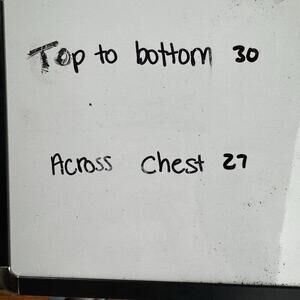 Top to bottom 30
Across Chest 27